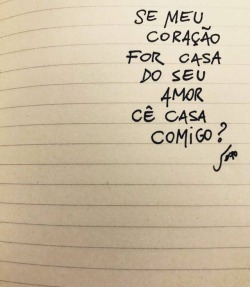 SE MEU
CORAÇÃO
FOR CASA
DO SEU
AMOR
CÊ CASA
COMIGO?